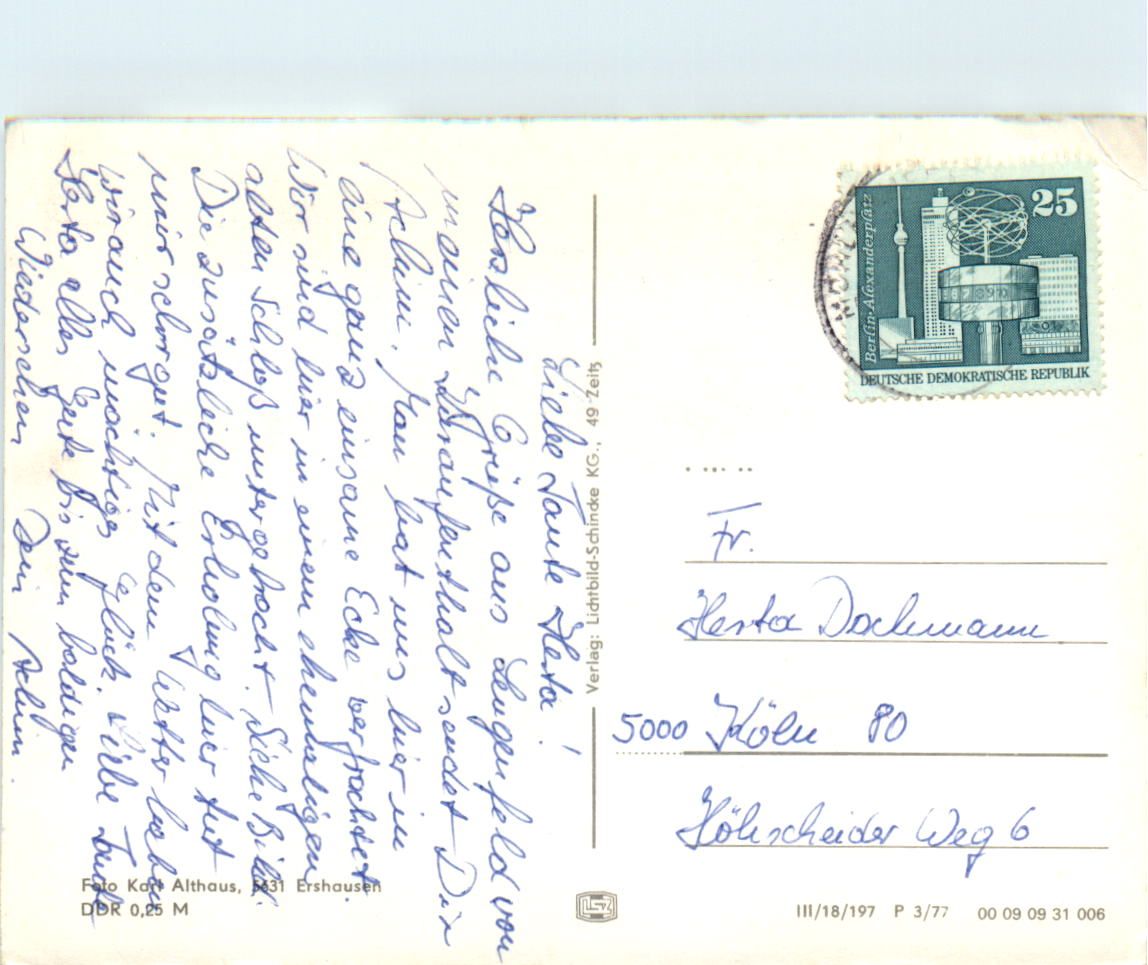 Liebe Tante Herta!
Herzliche Grüße aus Lengenfeld von
meinem Kuraufenthalt sendet Dir
Achim. Man hat uns hier in
eine ganz einsame Ecke verfrachtet.
Wir sind hier in einem ehemaligen
alten Schloß untergebracht. Siehe Bild.
Die zusätzliche Erholung hier tut
mir sehr gut. Mit dem Wetter haben
wir auch mächtiges Glück. Liebe Tante
Herta alles Gute bis zum baldigen
Wiedersehen Dein Achim.
Verlag: Lichtbild-Schincke KG., 49 Zeitz
Berlin-Alexanderplatz
25
DEUTSCHE DEMOKRATISCHE REPUBLIK
Fr.
Herta Dochmann
5000 Köln 80
Höhscheider Weg 6
Foto Karl Althaus, 5631 Ershausen
DDR 0,25 M
III/18/197 P 3/77 00 09 09 31 006